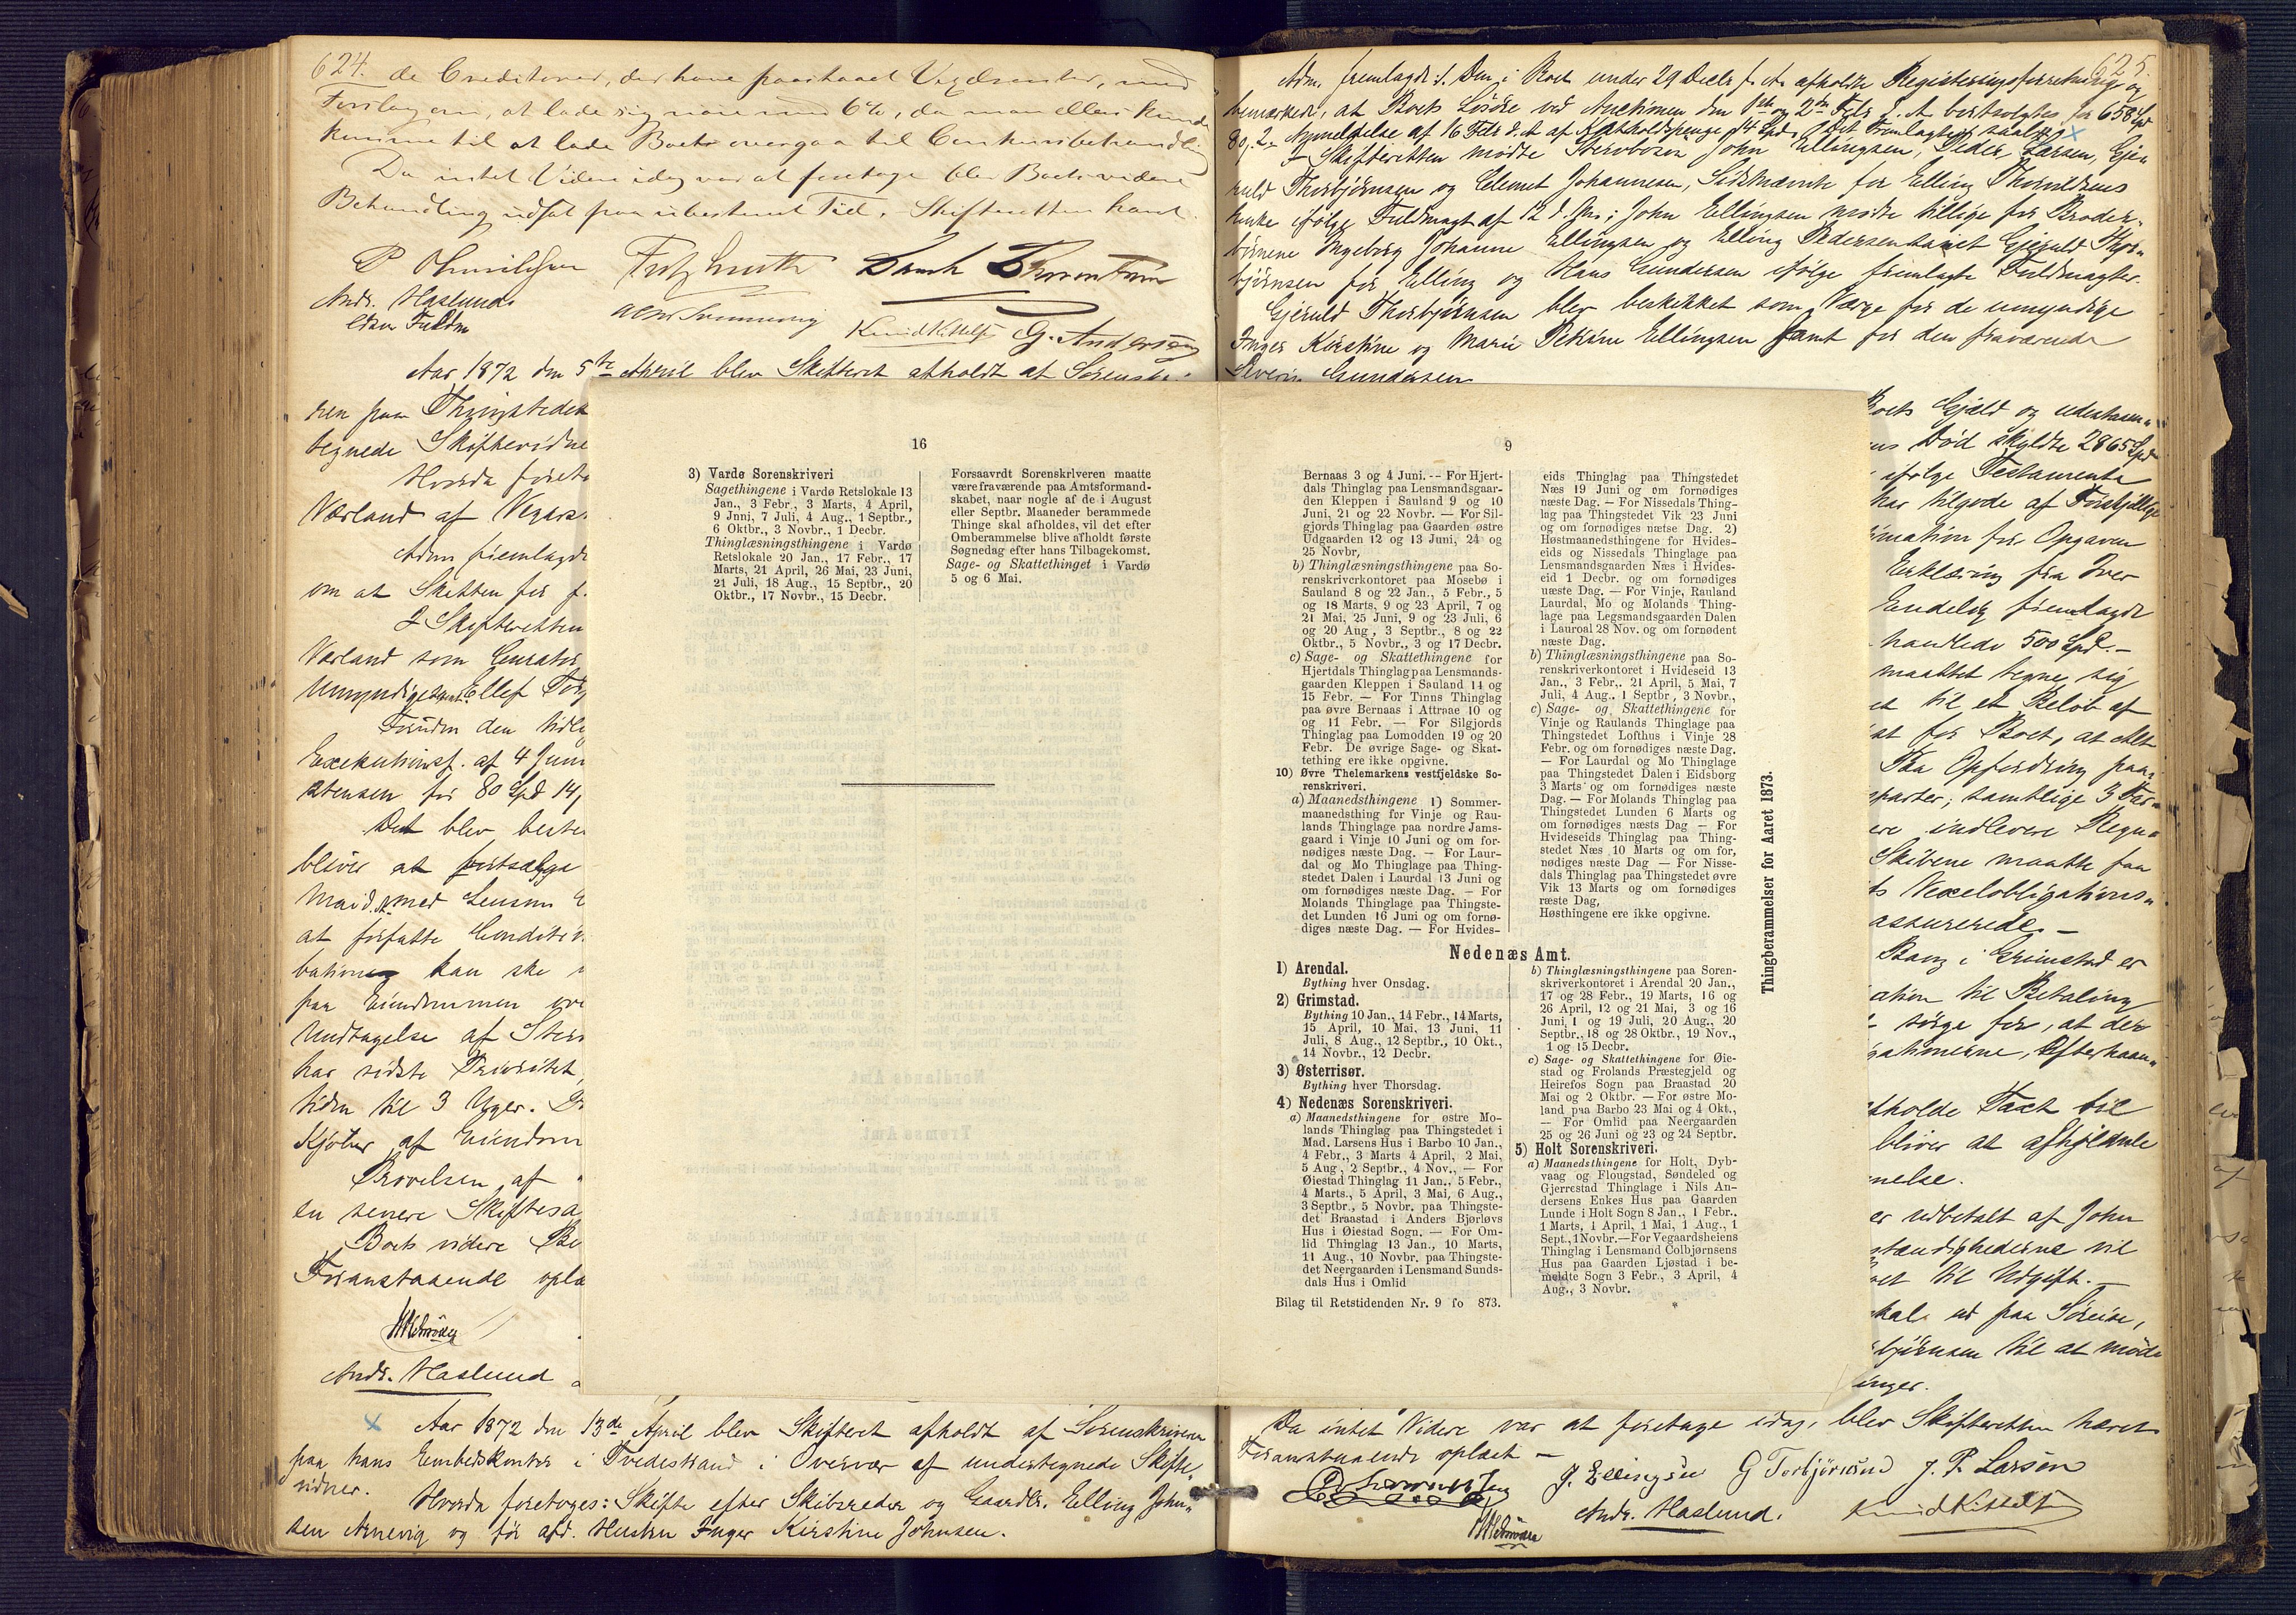 624.
de Creditorer, der have paastaaet Vexelrenter, med
Forslag om, at lade sig nøie med 6%, da man ellers kunde
komme til at lade Boet overgaa til Concursbehandling
Da intet Videre idag var at foretage blev Boets videre
Behandling udsat paa ubestemt Tid. Skifteretten hævet.
Fritz Smith
Andr. Haslund
Knud Kittelsen G. Andersen
Aar 1872 den 5te April blev Skifteret afholdt af Sorenskri-
ren paa Thingstedet
tegnede Skiftevidne
Hvorda foreto
Værland af Vegars
Adm fremlagde
om at Skiften for f.
I Skifteretten
Værland som Curator
Umyndige samt Ellef Torg
Foruden den tidl
Executionsf. af 4 Juni
stensen for 80 Spd 14
Det blev beste
bliver at fortsælge
Maid. med Lensm
at forfatte Conditi
bationen kan ske
paa Eiendommen
Undtagelse af Ster
har sidste Prioritet,
tiden til 3 Uger. D
Kjøber af Eiendom
Prøvelsen af
en senere Skiftesa
Boets videre Be
Foranstaaende opla
Andr. Haslund
x Aar 1872 den 13de April blev Skifteret afholdt af Sorenskriveren
paa hans Embedskontor i Tvedestrand i Overvær af undertegnede Skifte-
vidner.
Hvorda foretoges: Skifte efter Skibsreder og Gaardbr. Elling John-
sen Arnevig og før afd. Hustru Inger Kirstine Johnsen.
16
3) Vardø Sorenskriveri
Sagethingene i Vardø Retslokale 13
Jan., 3 Febr., 3 Marts, 4 April,
9 Jnni, 7 Juli, 4 Aug., 1 Septbr.,
6 Oktbr., 3 Novbr., 1 Decbr.
Thinglæsningsthingene i Vardø
Retslokale 20 Jan., 17 Febr., 17
Marts, 21 April, 26 Mai, 23 Juni,
21 Juli, 18 Aug., 15 Septbr., 20
Oktbr., 17 Novbr., 15 Decbr.
Forsaavrdt Sorenskrlveren maatte
være fraværende paa Amtsformand-
skabet, naar nogle af de i August
eller Septbr. Maaneder berammede
Thinge skal afholdes, vil det efter
Omberammelse blive afholdt første
Søgnedag efter hans Tilbagekomst.
Sage- og Skattethinget i Vardø
5 og 6 Mai.
625.
Adm. fremlagde: 1. Den i Boet under 29 Decbr f. A. afholdte Registreringsforretning og
bemærkede, at Boets Løsøre ved Auctionen den 1ste og 2den Febr d. A. bortsolgtes for 658 Spd
80 ß. 2. Anmeldelse af 16 Febr d. A. af Afholdspenge 14 Spd. Det fremlagte saal.
I Skifteretten mødte Stervbosen John Ellingsen, Peder Larsen, Gje-
ruld Thorbjørnsen og Clemet Johannesen, Sidstnævnte for Elling Thorvildsens
Enke ifølge Fuldmagt af 12 d. Ms; John Ellingsen mødte tillige for Broder-
børnene Ingeborg Johanne Ellingsen og Elling Pedersen samt Gjeruld Thor-
bjørnsen for Elling og Hans Gundersen ifølge fremlagte Fuldmagter.
Gjeruld Thorbjørnsen blev beskikket som Værge for de umyndige
Inger Kirstine og Marie Petrine Ellingsen samt for den fraværende
Severin Gundersen
9
Bernaas 3 og 4 Juni. -- For Hjert-
dals Thinglag paa Lensmandsgaar-
den Kleppen i Sauland 9 og 10
Juni, 21 og 22 Novbr. — For Sil-
gjords Thinglag paa Gaarden østre
Udgaarden 12 og 13 Juni, 24 og
25 Novbr,
b) Thinglæsningsthingene paa So-
renskriverkontoret paa Mosebø i
Sauland 8 og 22 Jan., 5 Febr., 5
og 18 Marts, 9 og 23 April, 7 og
21 Mai, 25 Juni, 9 og 23 Juli, 6
og 20 Aug., 3 Septbr., 8 og 22
Oktbr., 5 Novbr., 3 og 17 Decbr.
c) Sage- og Skattethingene for
Hjertdals Thinglag paa Lensmands-
gaarden Kleppen i Sauland 14 og
15 Febr. — For Tinns Thinglag
paa øvre Bernaas i Attraae 10 og
og 11 Febr. — For Silgjords
Thinglag paa Lomodden 19 og 20
Febr. De øvrige Sage- og Skat-
tething ere ikke opgivne.
10) Øvre Thelemarkens vestfjeldske So-
renskriveri.
a) Maanedsthingene 1) Sommer-
maanedsthing for Vinje og Rau-
lands Thinglage paa nordre Jams-
gaard i Vinje 10 Juni og om for-
nødiges næste Dag. — For Laur-
dal og Mo Thinglage paa Thing-
stedet Dalen i Laurdal 13 Juni og
om fornødiges næste Dag. — For
Molands Thinglage paa Thingste-
det Lunden 16 Juni og om fornø-
diges næste Dag. — For Hvides-
eids Thinglag paa Thingstedet
Næs 19 Juni og om fornødiges
næste Dag. — For Nissedals Thing-
lag paa Thingstedet Vik 23 Juni
og om fornødiges nætse Dag. 2)
Høstmaanedsthingene for Hvides-
eids og Nissedals Thinglage paa
Lensmandsgaarden Næs i Hvides-
eid 1 Decbr. og om fornødiges
næste Dag. — For Vinje, Rauland
Laurdal, Mo og Molands Thing-
lage paa Legsmandsgaarden Dalen
i Lauroal 28 Nov. og om fornødent
næste Dag.
b) Thinglæsningsthingene paa So-
renskriverkontoret i Hvideseid 13
Jan., 3 Febr., 21 April, 5 Mai, 7
Juli, 4 Aug. 1 Septbr, 3 Novbr.,
c) Sage- og Skattethingene for
Vinje og Raulands Thinglage paa
Thingstedet Lofthus i Vinje 28
Febr. og om fornødiges næste Dag.
— For Laurdal og Mo Thinglage
paa Thingstedet Dalen i Eidsborg
3 Marts og om fornødiges næste
Dag. — For Molands Thinglag paa
Thingstedet Lunden 6 Marts og
om fornødiges næsts Dag — For
Hvideseids Thinglag paa Thing-
stedet Næs 10 Marts og om for,
nødiges næste Dag — For Nisse-
dals Thinglag paa Thingstedet øvre
Vik 13 Marts og om fornødiges
ræste Dag,
Høsthingene ere ikke opgivne.
Nedenæs Amt.
1) Arendal.
Bything hver Onsdag.
2) Grimstad.
Bything 10 Jan., 14 Febr., 14 Marts,
15 April, 10 Mai, 13 Juni, 11
Juli, 8 Aug., 12 Septbr., 10 Okt.,
14 Novbr., 12 Decbr.
3) Østerrisør.
Bything hver Thorsdag.
4) Nedenæs Sorenskriveri.
a) Maanedsthingene for østre Mo-
lands Thinglag paa Thingstedet i
Mad. Larsens Hus i Barbo 10 Jan.,
4 Febr., 3 Marts 4 April, 2 Mai,
5 Aug, 2 Septbr., 4 Nov., — For
Øiestad Thinglag 11 Jan., 5 Febr.,
4 Marts., 5 April, 3 Mai, 6 Aug.,
3 Septbr., 5 Novbr. paa Thingste-
det Braastad i Anders Bjørløvs
Hus i Øiestad Sogn. — For Om-
lid Thinglag 13 Jan., 10 Marts,
11 Aug., 10 Novbr. paa Thingste-
det Neergaarden i Lensmand Sunds-
dals Hus i Omlid
Bilag til Retstidenden Nr. 9 fo 873.
b) Thinglæsningsthingene paa Soren-
skriverkontoret i Arendal 20 Jan.,
17 og 28 Febr., 19 Marts, 16 og
26 April, 12 og 21 Mai, 3 og 16
Juni, 1 og 19 Juli, 20 Aug., 20
Septbr., 18 og 28 Oktbr., 19 Nov.,
1 og 15 Decbr.
c) Sage- og Skattethingene for Øie-
stad og Frolands Præstegjeld og
Heirefos Sogn paa Braastad 20
Mai og 2 Oktbr. — For østre Mo-
land paa Barbo 23 Mai og 4 Okt.,
— For Omlid paa Neergaarden
25 og 26 Juni og 23 og 24 Septbr.
5) Holt Sorenskriveri.
a) Maanedsthingene for Holt, Dyb-
vaag og Flougstad, Søndeled og
Gjerrestad Thinglage i Nils An-
dersens Enkes Hus paa Gaarden
Lunde i Holt Sogn 8 Jan., 1 Febr..
1 Marts, 1 April, 1 Mai, 1 Aug., 1
Sept., 1 Novbr.—For Vegaardsheiens
Thinglag i Lensmand Colbjørnsens
Hus paa Gaarden Ljøstad i be-
meldte Sogn 3 Febr., 3 April, 4
Aug., 3 Novbr.
Thingberammelser for Aaret 1873.
Boets Gjæld og udestaaen-
ns Død skyldte 2865 Spd
ifølge Testamente
har tilgode af Forskjellige
mation for Opgaven
Erklæring fra Iver
Endelig fremlagde
handlede 500 Spd. -
maattet tegne sig
et til et Beløb af
at for Boet, at Alt
Paa Opfordring paa-
parter; samtlige 3 Par-
ere indlevere Regn-
Skibene maatte faa
ts Vexelobligations-
assurerede. -
Bang i Grimstad er
ation til Betaling
sørge for, at der
gationerne, Efterhaan-
afholde Taxt til
bliver at afhjemle
nelse.
er udbetalt af John
stændighederne vil
oet til Udgift. -
skal ud paa Søreise,
bjørnsen til at møde
inger.
Da intet Videre var at foretage idag, blev Skifteretten hævet.
Foranstaaende oplæst -
J. Ellingsen G Torbjørnsen J. P. Larsen
Andr. Haslund. Knud Kittelsen